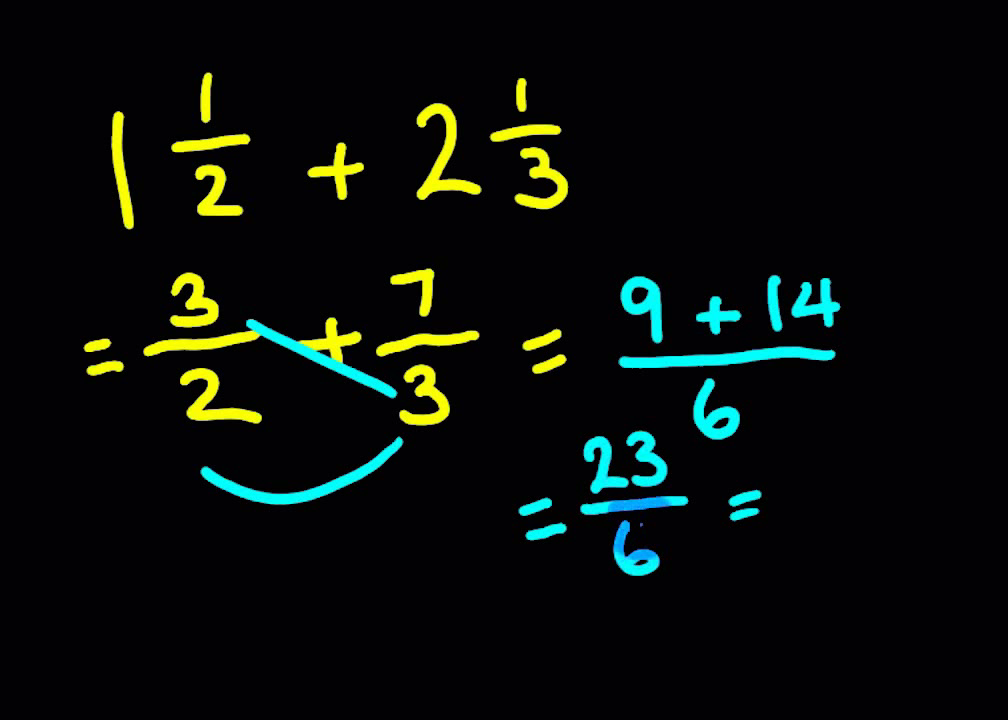 1 1/2 + 2 1/3
= 3/2 + 7/3 = 9 + 14/6
= 23/6 =